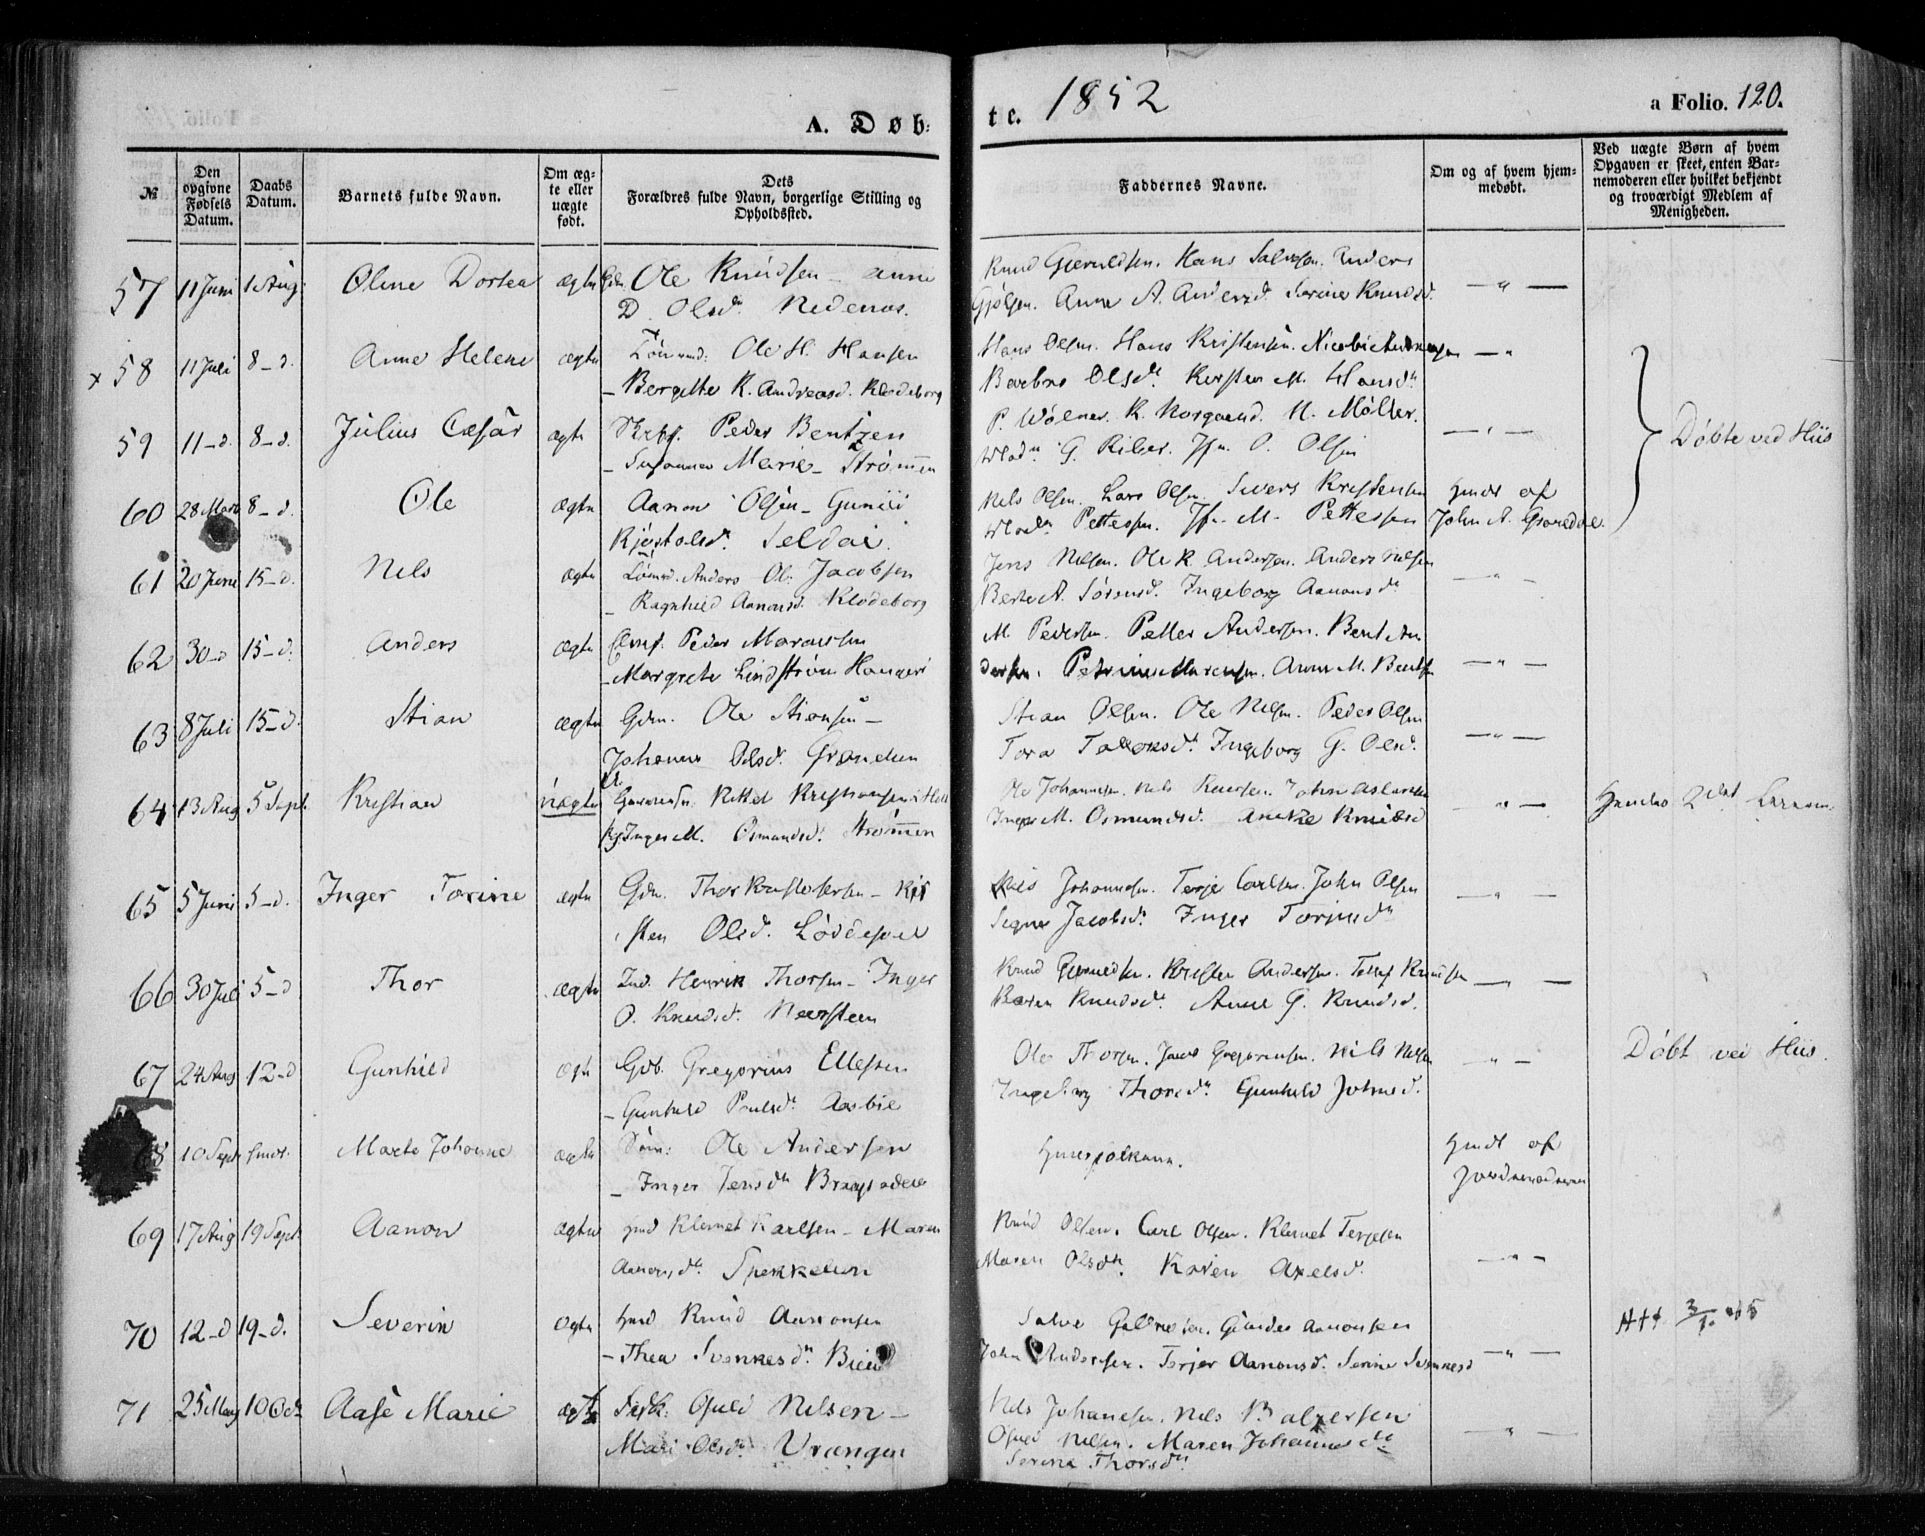 A. Døb:
te. 1852
a Folio. 120.
№
Den opgivne Fødsels Datum.
Daabs Datum.
Barnets fulde Navn.
Om ægte eller uægte født.
Dets Forældres fulde Navn, borgerlige Stilling og Opholdsted.
Faddernes Navne.
Om og af hvem hjemmedøbt.
Ved uægte Børn af hvem Opgaven er skeet, enten Barnemoderen eller hvilket bekjendt og troværdigt Medlem af Menigheden.
57 11 Juni 1 Aug: Oline Dortea ægte Gdm. Ole Knudsen – Anne
D. Olsdr. Nedenes.
Knud Gjeruldsen. Hans Salvesen. Anders
Gjølsen. Anne A. Andersd. Serine Knudsd. — " —
x 58 11 Juli 8 – d. Anne Helene ægte Ole H. Hansen
– Bergitte K. Andreasd. Klodeborg
Hans Olsen. Hans Kristensen. Nicolai Andreasen — "
Barbro Olsdr. Kirsten M. Hansdr
59 11 – d. 8 – d. Julius Cæsar ægte Peder Bentzen
– Susanna Marie – Strømmen
P. Wølner. K. Norgaard. M. Møller.
G. Riber. Jfr. O. Olsen — " —
Døbte ved Hiis
60 28 Marts 8 – d. Ole ægte Aanon Olsen – Gunild
Kjøstolsd. Seldal.
Nels Olsen. Lars Olsen. Sivert Kristensen
Pettersen. Jfr. M. Pettersen
Hmdt af
John A.
61 20 Juni 15 – d. Nils ægte Anders Ol: Jacobsen
– Ragnhild Aanonsd. Klodeborg
Jens Nelsen. Ole K. Andersen. Anders Nielsen
Berte A. Sørensd. Ingeborg Aanonsdr — " —
62 30 – d 15 – d. Anders ægte Peder Marcussen
– Margrete Lindstrøm
M. Pedersen. Petter Andersen. Bent An
dersen. Petrine Marensen. Anne M. Bentsen — " —
63 8 Juli 15 – d. Stian ægte Gdm. Ole Stiansen –
Johanne Olsd.
Stian Olsen. Ole Nelsen. Peder Olsen
Tora Tallaksdr. Ingeborg G. Olsd. — " —
64 13 Aug 5 Sept. Kristian uægte Kittel Kristiansen
Pg. Inger M. Osmundsd. Strømmen
Ole Johannesen. Nils Knudsen. John Aslaksen
Inger M. Osmundsd. Knudsd — " —
Hendes 2det
65 5 Juni 5 – d. Inger Torine ægte Gdm. Thor Kristofersen – Kir
sten Olsd. Løddesøl
Nils Johannesen. Terje Carlsen. John Olsen
Signe Jacobsdr. Inger Torine — " —
66 30 Juli 5 – d Thor ægte Ind. Henrik Thorsen – Inger
O. Knudsd. Neersteen
Knud Kristen Andersen. Tellef Knudsen
Karen Knudsdr. Anne G. Knudsd. — " —
67 24 Aug 12 – d Gunhild ægte Gdb. Gregorius Ellefsen
– Gunhild Poulsdr. Aasbie
Ole Thorsen. Jens Gregoriusen. Nils Nelsen
Ingeborg Thorsdr. Gunhild Johnsd. — " —
Døbt ved Hiis.
68 10 Sept hmdt. Marte Johanne ægte Ole Andersen
– Inger Jensdr
Huusfolkene.
Hmdt af
Jordemoderen
69 17 Aug 19 Sept. Aanon ægte Hmd Klemet Karlsen – Maren
Aanonsdr.
Knud Olsen. Carl Olsen. Klemet Terjesen
Maren Olsdr. Karen Axelsd. — " —
70 12 – d 19 – d. Severin ægte Hmd Knud Aanonsen
– Thea Svenkesdr.
Salve Gunder Aanonsen
John Andersen. Terjer Aanonsd. Serine Svenkesd — " —
71 25 May 10 Oct Aase Marie ægte Osuld Nelsen –
Mari Olsdr Vrængen
Nils Johanesen. Nils Balzersen
Osuld Nelsen. Maren Johannesdr
Serine Thorsdr. — " —